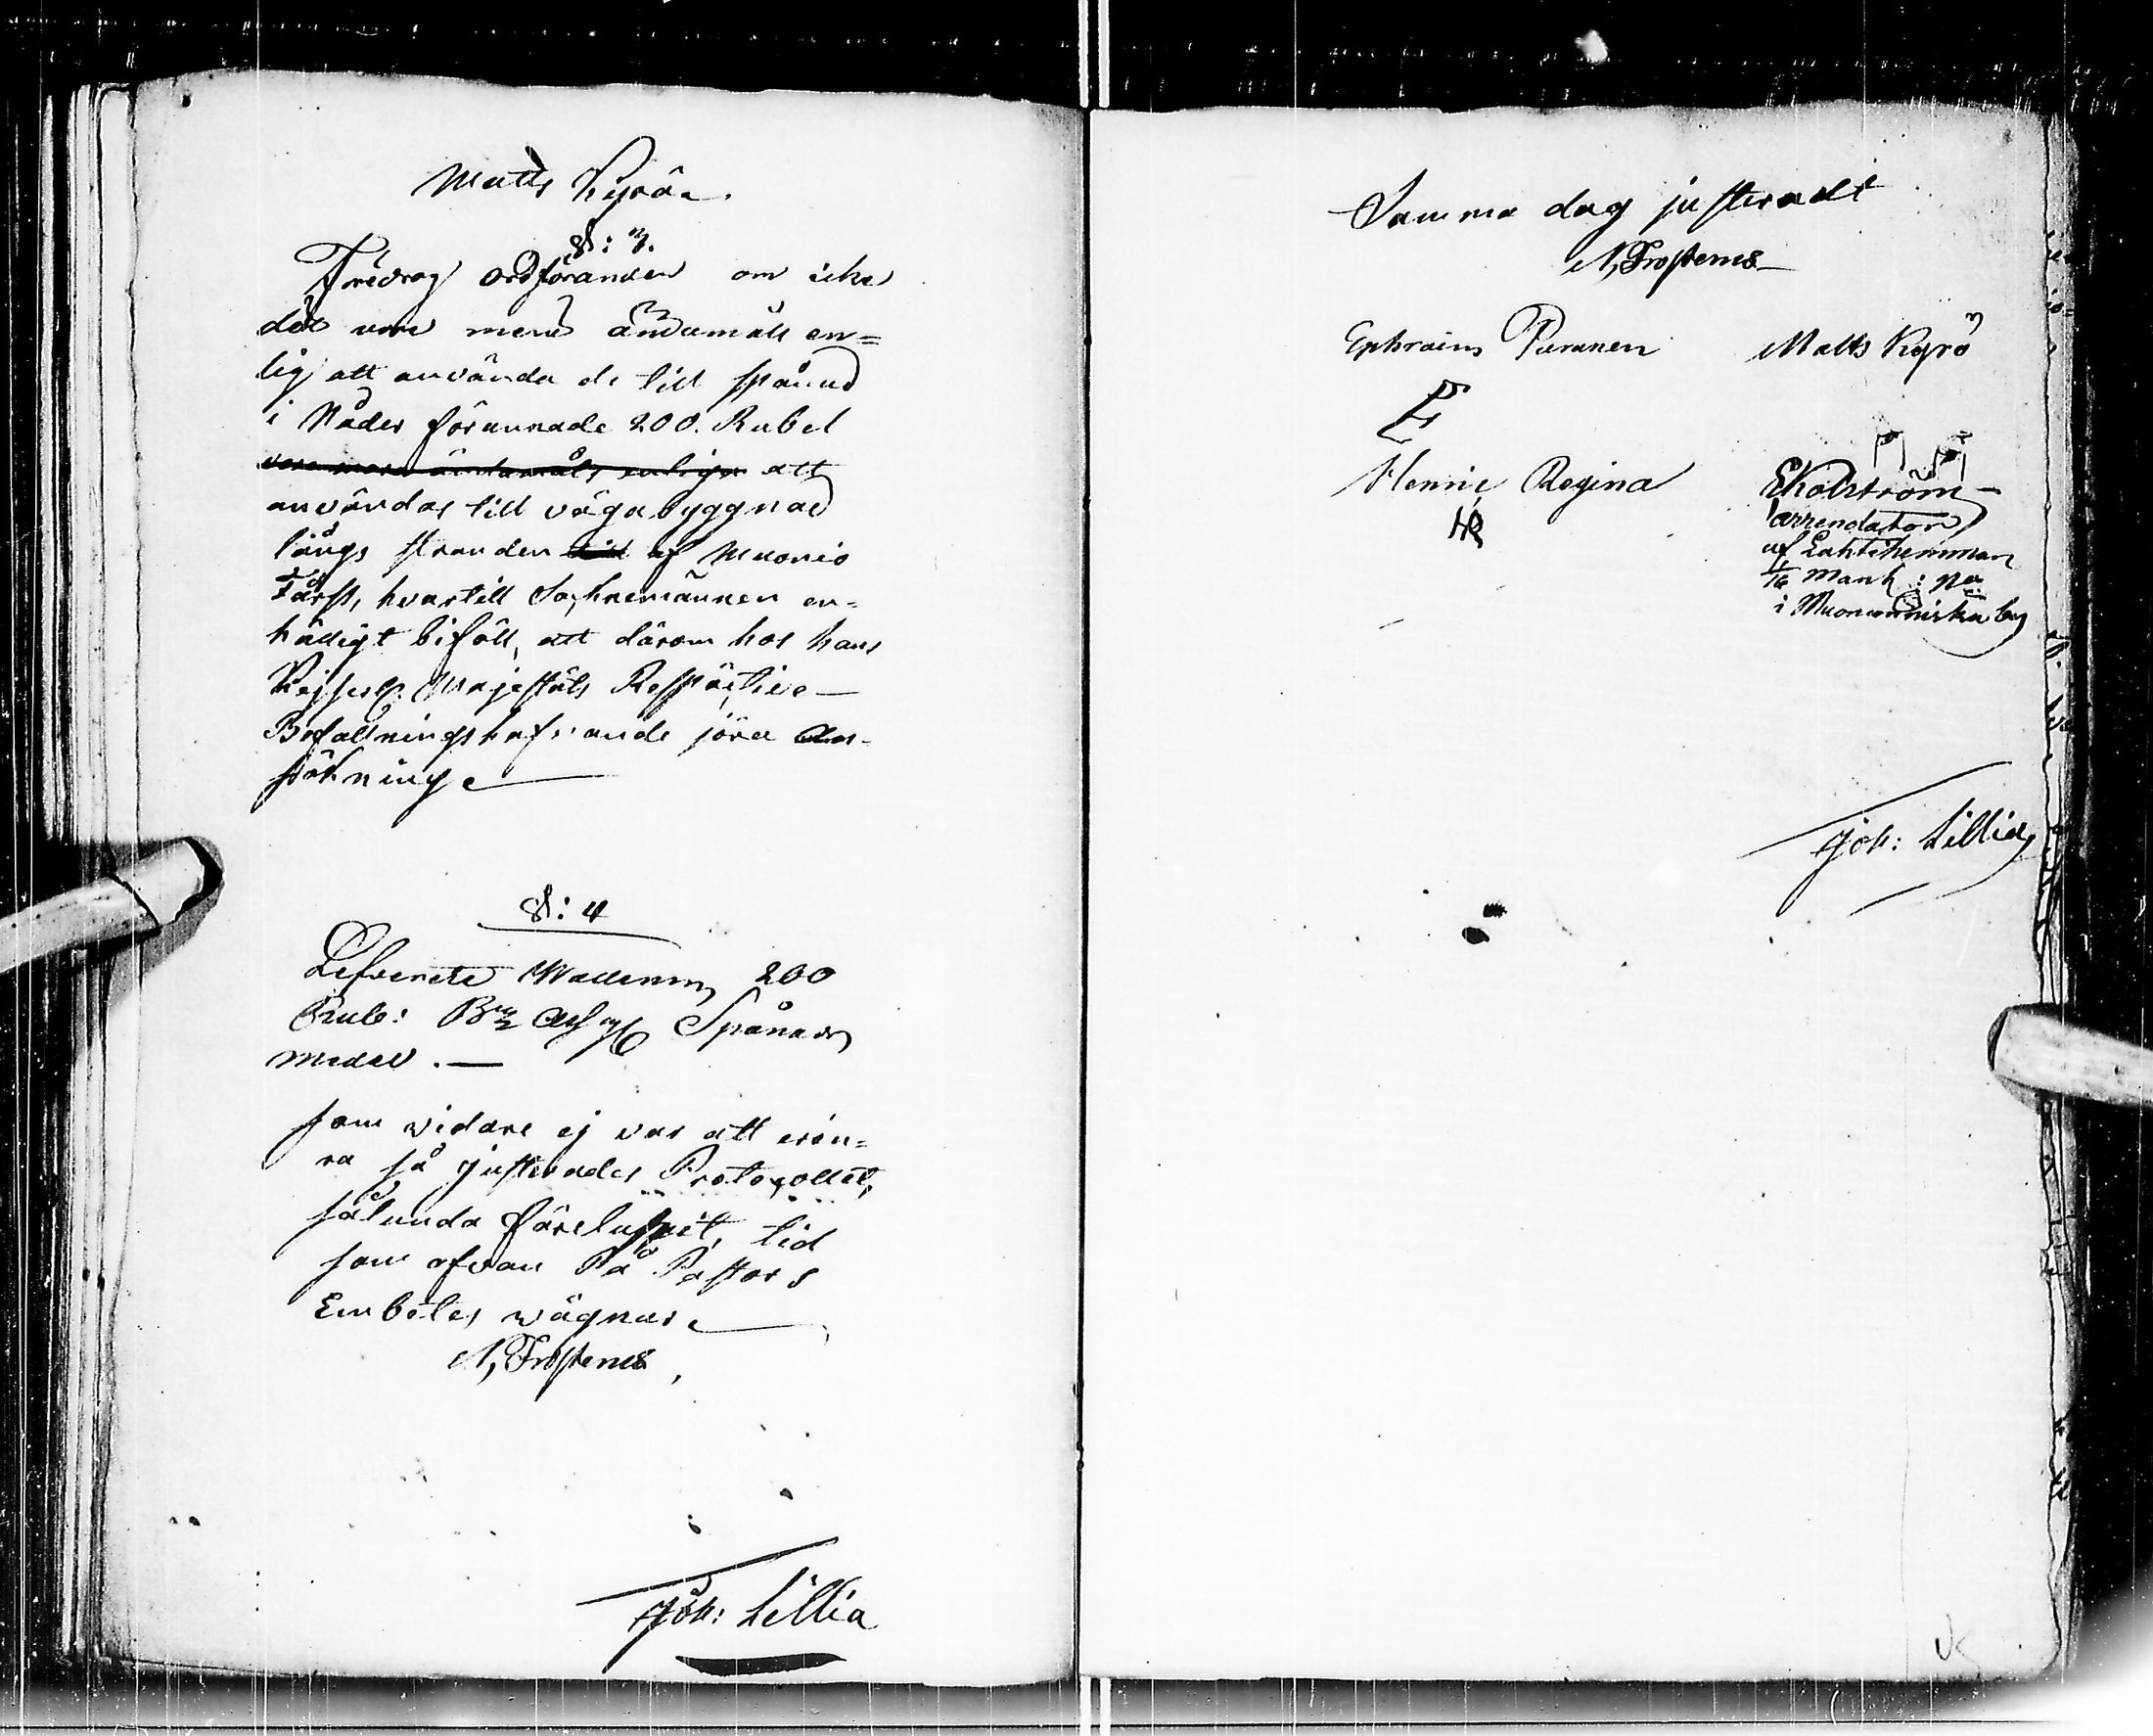 Matts Kyrö.
§: 3.
Föredrog ordföranden om icke
det vore mera ändamåls en=
lig att använda de till spånad
i Nåder förunnade 200. Rubel
vore mera ändamåls enliga att
användas till väga byggnad
längs stranden till af Muonio
Fårss, hvartill Socknemännen en=
hälligt biföll, att därom hos hans
Kejserl: Majestäts Respäctive
Befallningshafvande jöra An-
sökning
§: 4
Lefverete Wallenius 200
Rub: Spånads
medel.
som vidare ej var att erin=
ra så justerades Protocollet,
sålunda föreluppit, tid
som ofvan På Pastors
Embetes wägnar
N, Frosterus
Joh: Lillia
Samma dag justeradt
N, Frosterus
Ephraim Puranen Matts Kyrö
Hennic Regina Ekolström
HR
arrendator
af Lahti hemman
1/16 Mant:
i Muonionniska by
Joh: Lillia